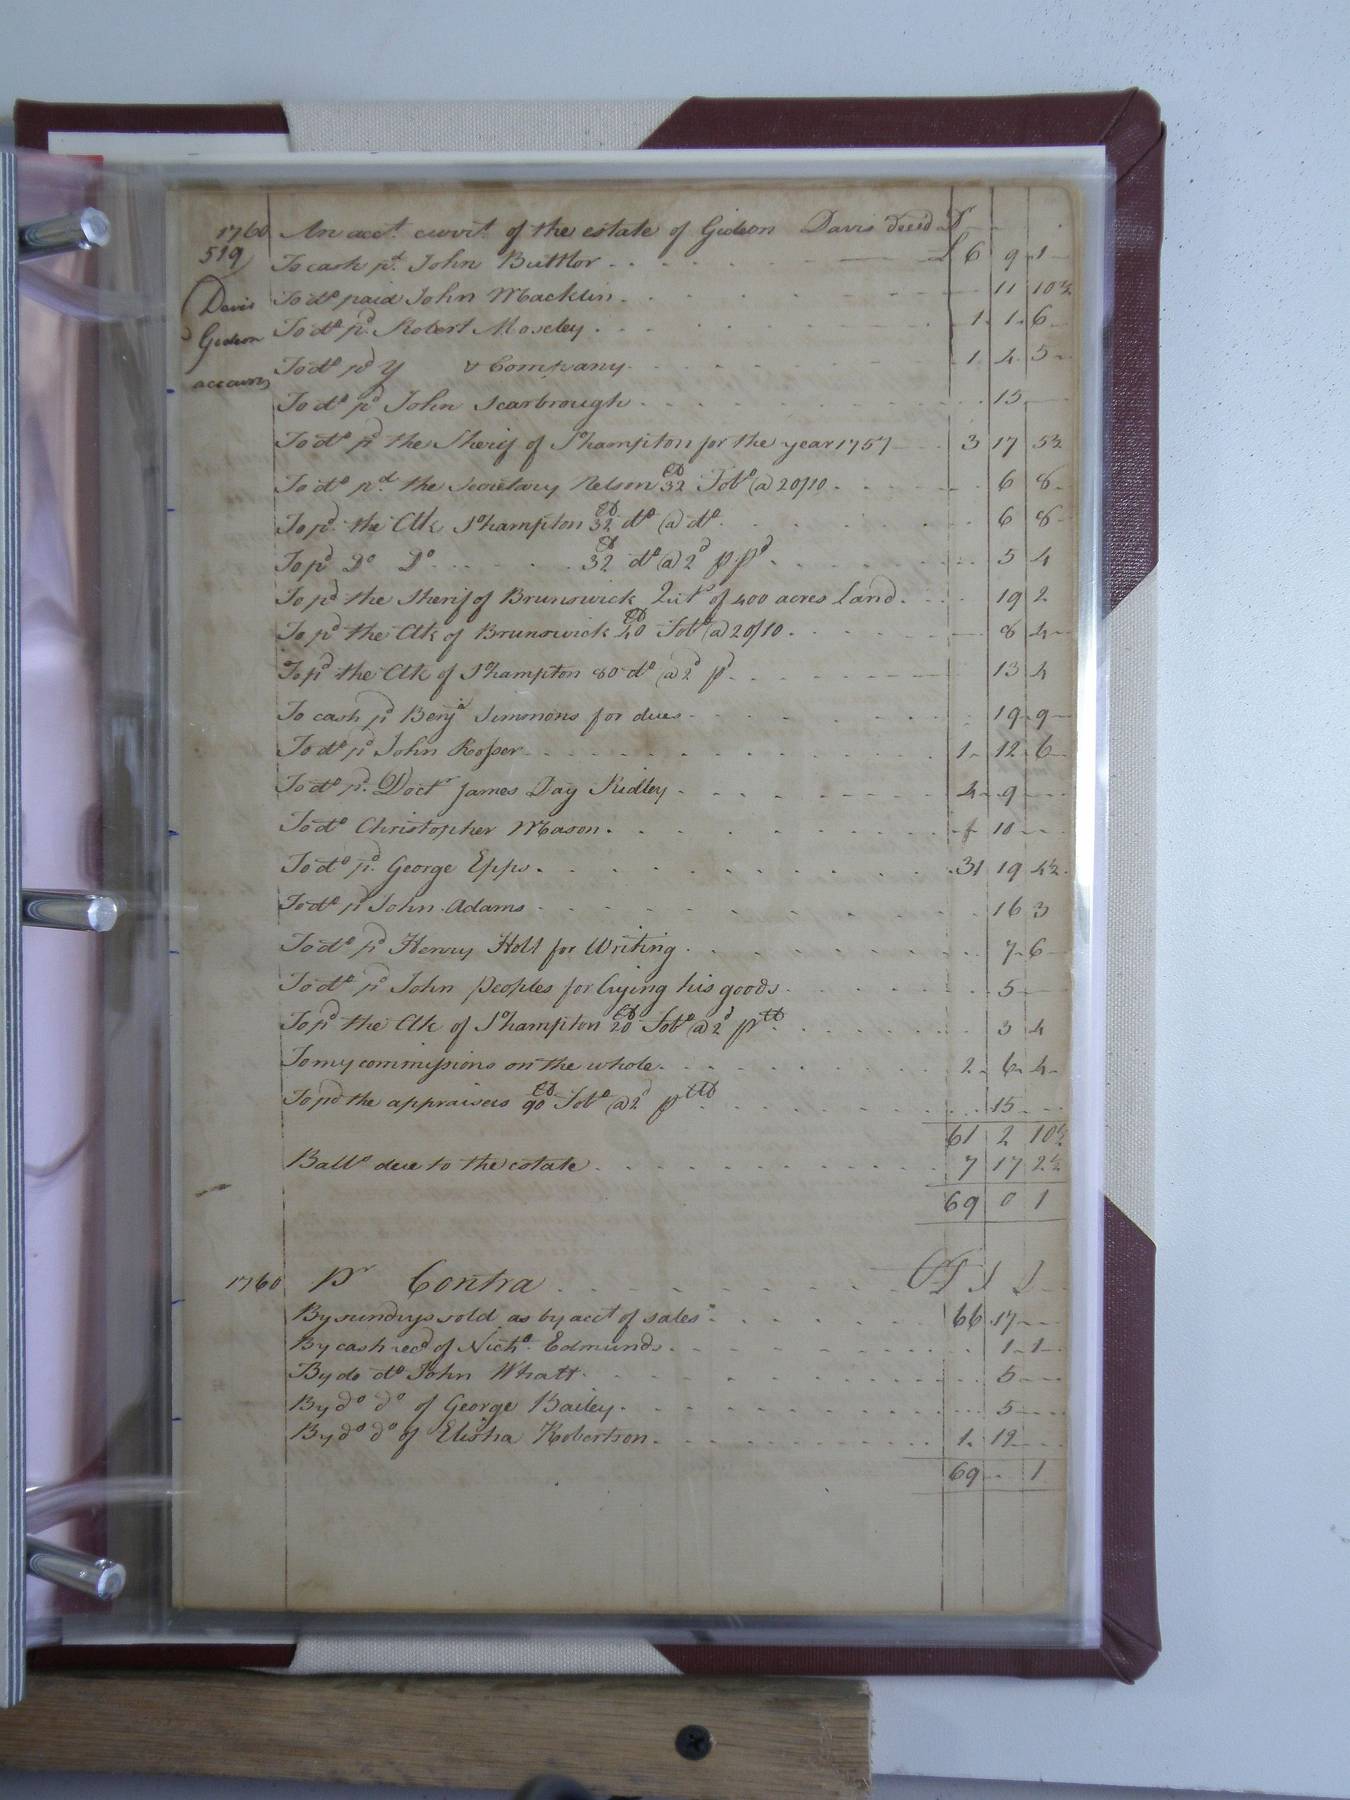 1760 An acct. currt. of the estate of Gideon Davis decd Dr
519 To cash pd. John Buttlor £ 6 9 1
Davis Gideon accou
To do paid John Macklin 11 10½
To do pd. Robert Moseley 1 1 6
To do pd Y & Company 1 4 5
To do pd John Scarbrough 15
To do pd the Sherif of Sohampton for the year 1757 3 17 5½
To do pd. the Secretary Nelson 32 lb Tobo @ 20/10 6 8
To pd. the Clk Sohampton 32 lb do @ do 6 8
To pd Do Do 32 lb do @ 2d p. pd 5 4
To pd the Sherif of Brunswick Quits of 400 acres land 19 2
To pd the Clk of Brunswick 40 lb Tobo @ 20/10 8 4
To pd the Clk of Sohampton 80 do @ 2d p 13 4
To cash pd Benja Simmons for dues 19 9
To do pd John Rosser 1 12 6
To do pd. Doctr James Day Ridley 4 9
To do Christopher Mason 1 10
To do pd. George Epps 31 19 4½
To do pd John Adams 16 3
To do pd Henry Holt for Writing 7 6
To do pd John Peoples for Crying his goods 5
To pd the Clk of Sohampton 20 lb Tobo @ 2d p lb 3 4
To my commissions on the whole 2 6 4
To pd the appraisers 90 lb Tobo @ 2d p lb 15
61 2 10½
Ballo due to the estate 7 17 2½
69 0 1
1760 Pr Contra
By sundrys sold as by acct of sales 66 17
By cash recd of Nicho. Edmunds 1 1
By do do John Whatt 5
By do do of George Bailey 5
By do do of Elisha Robertson 1 19
69 1